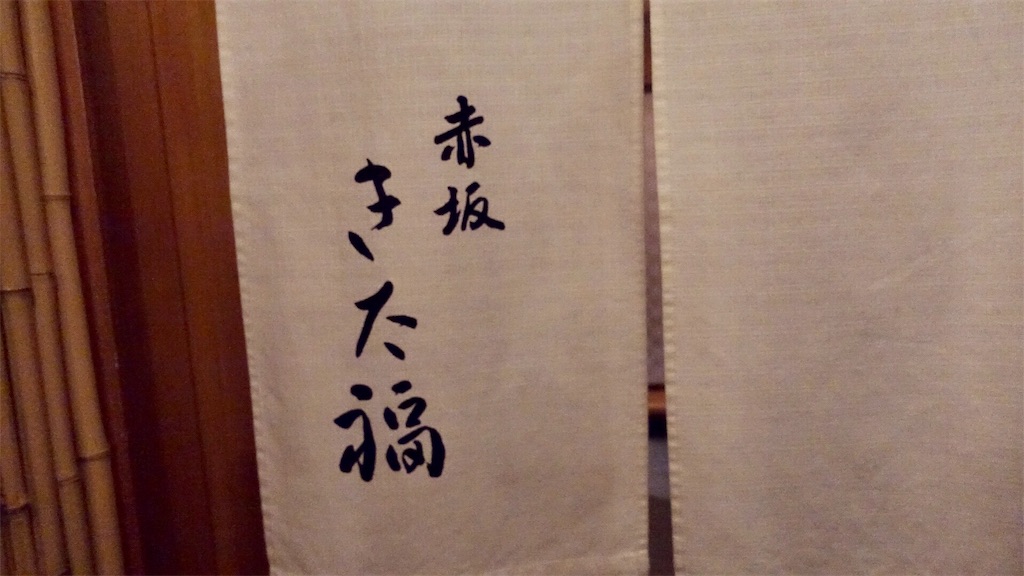 赤坂
き太福